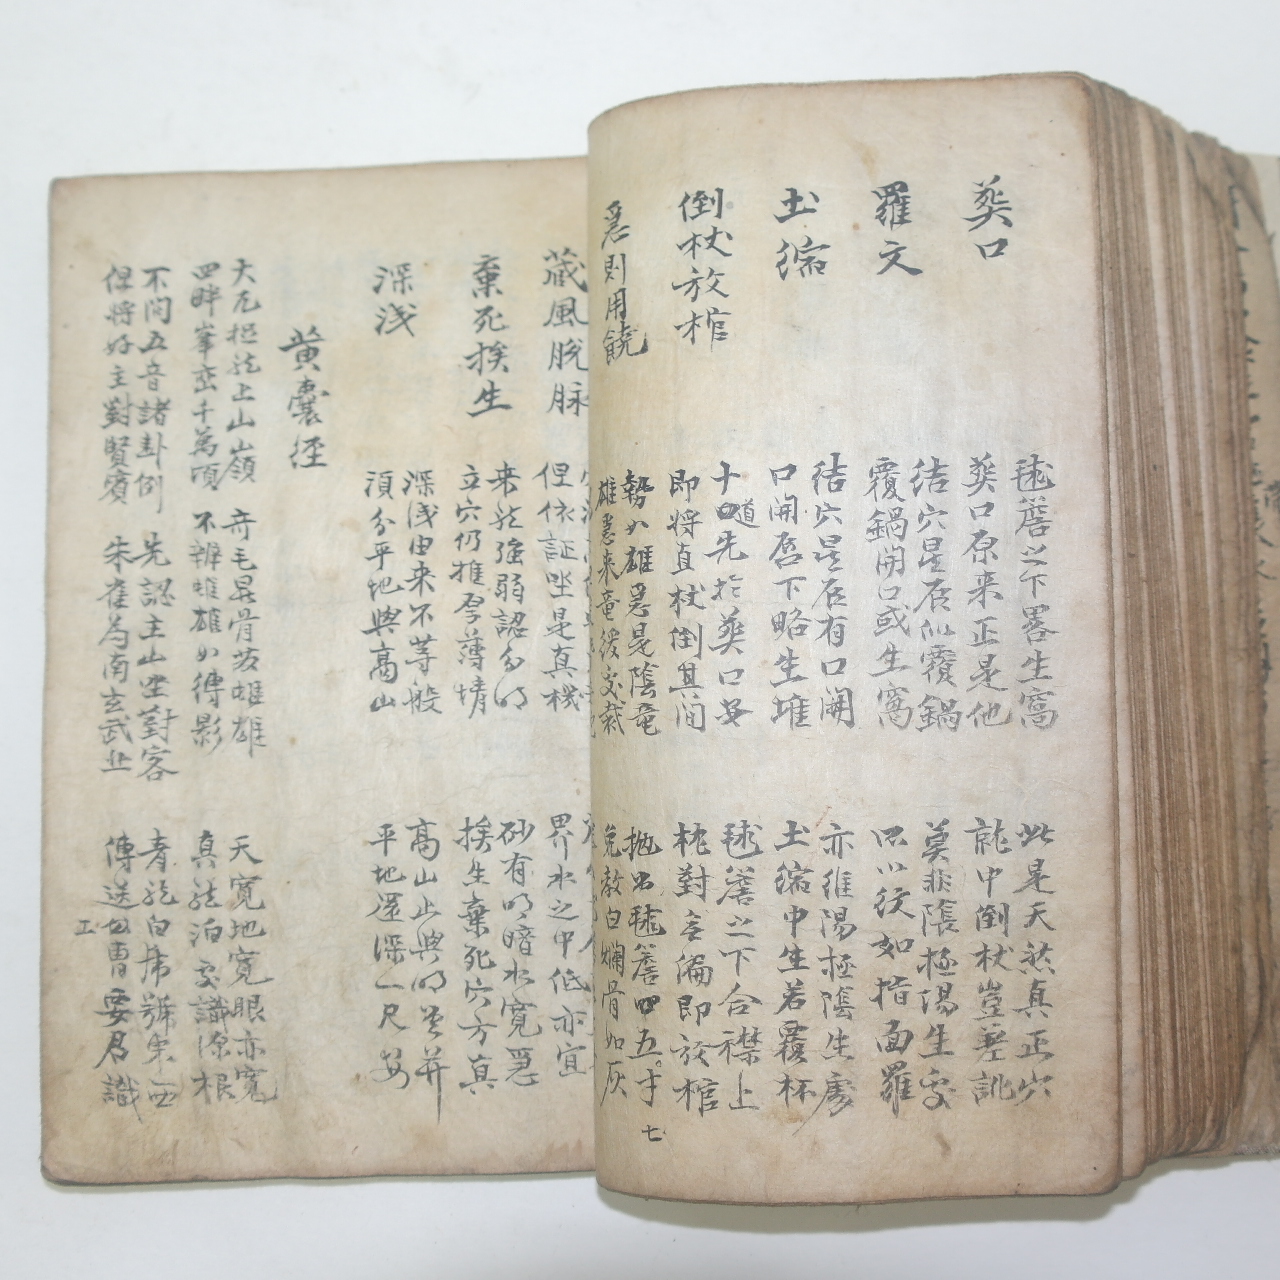 葬口
毬簷之下畧生窩 此是天然真正穴
葬口原来正是他 就中倒杖豈差訛
羅文
結穴星辰似覆鍋 莫非陰極陽生處
覆鍋開口或生窩 只以紋如指面羅
土縮
結穴星辰有口開 亦維陽極陰生處
口開唇下略生堆 土縮中生若覆杯
倒杖放棺
十四道先於葬口安 毬簷之下合襟上
即将直杖倒其间 枕對無偏即放棺
急則用饒
勢如雄急是陰竜 抛出毬簷四五寸
雄急来竜緩處裁 免教白爛骨如灰
七
蔵風脫脉
但依証坐是真機 界水之中低亦宜
棄死挨生
来龍強弱認分明 砂有明暗水寛急
立穴仍推厚薄情 挨生棄死穴方真
深浅
深浅由来不等般 高山止與明堂并
須分平地與高山 平地還深一尺安
黄囊径
大凡梃龍上山嶺 奇毛異骨苏雌雄 天寛地寛眼亦寛
四畔峯巒千萬頃 不辨雌雄如縛影 真龍泊處識源根
不问五音諸卦例 先認主山坐對客 青龍白虎號東西
但将好主對賢賓 朱雀為南玄武北 傳送功曹要君識